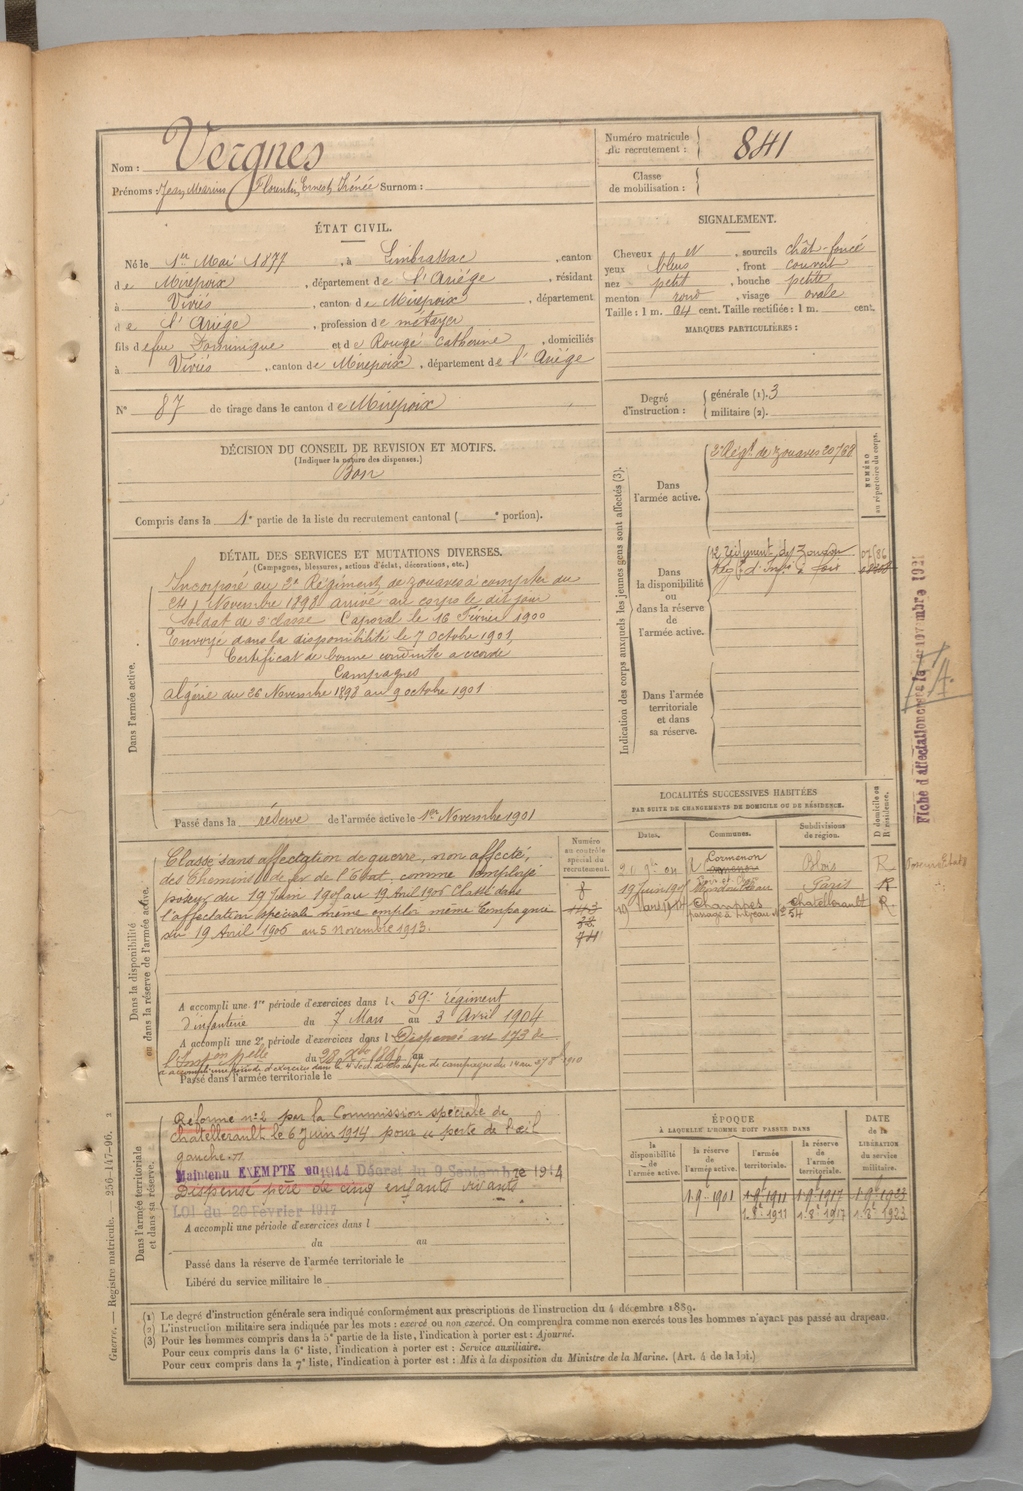 Nom : Vergnes
Prénoms : Jean, Marius Florentin, Ernest, Irénée Surnom :
Numéro matricule de recrutement : 841
Classe de mobilisation :
ÉTAT CIVIL.
Né le 1er Mai 1877, à Limbrassac, canton
de Mirepoix, département de l'Ariège, résidant
à Viviès, canton de Mirepoix, département
de l'Ariège, profession de métayer
fils de feu Dominique et de Rougé Catherine, domiciliés
à Viviès, canton de Mirepoix, département de l'Ariège
N° 87 de tirage dans le canton de Mirepoix
SIGNALEMENT.
Cheveux et, sourcils chât-foncé
yeux bleus, front couvert
nez petit, bouche petite
menton rond, visage ovale
Taille : 1 m. 64 cent. Taille rectifiée : 1 m. cent.
MARQUES PARTICULIÈRES :
Degré d'instruction : générale (1). 3
militaire (2).
DÉCISION DU CONSEIL DE REVISION ET MOTIFS.
(Indiquer la nature des dispenses.)
Bon
Compris dans la 1e partie de la liste du recrutement cantonal ( e portion).
DÉTAIL DES SERVICES ET MUTATIONS DIVERSES.
(Campagnes, blessures, actions d'éclat, décorations, etc.)
Dans l'armée active.
Incorporé au 3e Régiment de zouaves à compter du
24 Novembre 1898 arrivé au corps le dit jour
Soldat de 2e classe Caporal le 16 Février 1900
Envoyé dans la disponibilité le 7 Octobre 1901
Certificat de bonne conduite accordé
Campagnes
Algérie du 26 Novembre 1898 au 9 octobre 1901
Passé dans la réserve de l'armée active le 1er Novembre 1901
Indication des corps auxquels les jeunes gens sont affectés (3).
NUMÉRO au répertoire du corps.
Dans l'armée active.
3e Régt de zouaves 20768
Dans la disponibilité ou dans la réserve de l'armée active.
2e régiment des Zouaves
Dans l'armée territoriale et dans sa réserve.
Fiche d'affectation
LOCALITÉS SUCCESSIVES HABITÉES
PAR SUITE DE CHANGEMENTS DE DOMICILE OU DE RÉSIDENCE.
Dates. Communes. Subdivisions de région. D domicile ou R résidence.
Cormenon Blois R
19 Juin 1905 Paris R
19 Mars 1914 Champres Chatellerault R
passage à niveau N° 54
Dans la disponibilité ou dans la réserve de l'armée active.
Numéro au contrôle spécial du recrutement.
8
143
78
741
Classé sans affectation de guerre, non affecté,
des Chemins de fer de l'Etat, comme employé
poseur du 19 Juin 1905 au 19 Avril 1906 Classé dans
l'affectation spéciale même emploi même Compagnie
du 19 Avril 1906 au 5 novembre 1913.
A accompli une 1re période d'exercices dans le 59e régiment
d'infanterie du 7 Mars au 3 Avril 1904
A accompli une 2e période d'exercices dans l Dispensé
Passé dans l'armée territoriale le
Dans l'armée territoriale et dans sa réserve.
Réformé n° 2 par la Commission spéciale de
Chatellerault le 6 juin 1914 pour perte de l'œil
gauche
Maintenu EXEMPTÉ Décret du 9 Septembre 1914
Dispensé père de cinq enfants vivants
LOI du 20 Février 1917
A accompli une période d'exercices dans l
du au
Passé dans la réserve de l'armée territoriale le
Libéré du service militaire le
ÉPOQUE
À LAQUELLE L'HOMME DOIT PASSER DANS
la disponibilité de l'armée active. la réserve de l'armée active. l'armée territoriale. la réserve de l'armée territoriale.
DATE de la LIBÉRATION du service militaire.
1-9-1901 1-9bre 1911 1-9bre 1917 1-9bre 1923
1.8e 1911 1.8e 1917 1.8e 1923
(1) Le degré d'instruction générale sera indiqué conformément aux prescriptions de l'instruction du 4 décembre 1889.
(2) L'instruction militaire sera indiquée par les mots : exercé ou non exercé. On comprendra comme non exercés tous les hommes n'ayant pas passé au drapeau.
(3) Pour les hommes compris dans la 5e partie de la liste, l'indication à porter est : Ajourné.
Pour ceux compris dans la 6e liste, l'indication à porter est : Service auxiliaire.
Pour ceux compris dans la 7e liste, l'indication à porter est : Mis à la disposition du Ministre de la Marine. (Art. 4 de la loi.)
Guerre. — Registre matricule. — 256-147-96.